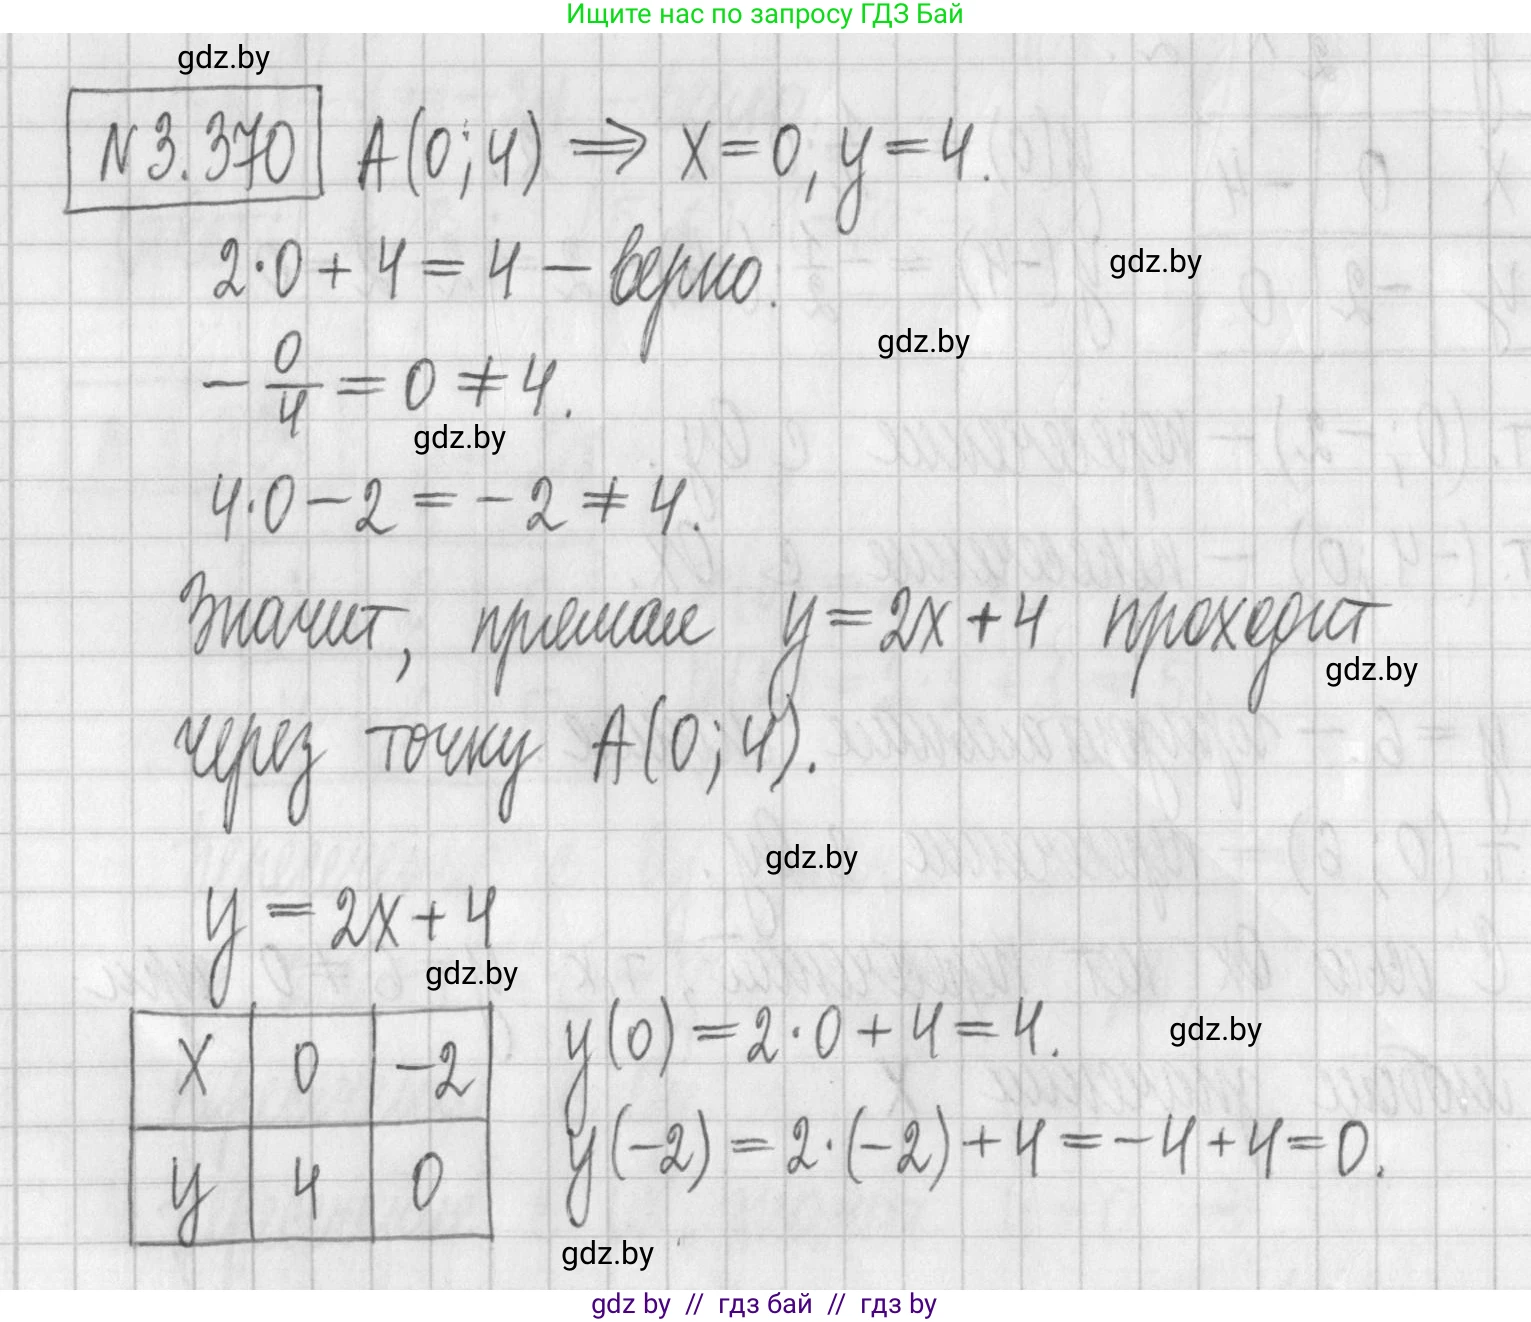 Ищите нас по запросу ГДЗ Бай
gdz.by
N 3.370 A(0; 4) ⇒ x = 0, y = 4.
2·0 + 4 = 4 — верно.
gdz.by
gdz.by
−0/4 = 0 ≠ 4.
gdz.by
4·0 − 2 = −2 ≠ 4.
Значит, прямая y = 2x + 4 проходит
gdz.by
через точку A(0; 4).
gdz.by
y = 2x + 4
gdz.by
x 0 −2
y(0) = 2·0 + 4 = 4.
gdz.by
y 4 0
y(−2) = 2·(−2) + 4 = −4 + 4 = 0.
gdz.by
gdz by // гдз бай // гдз by